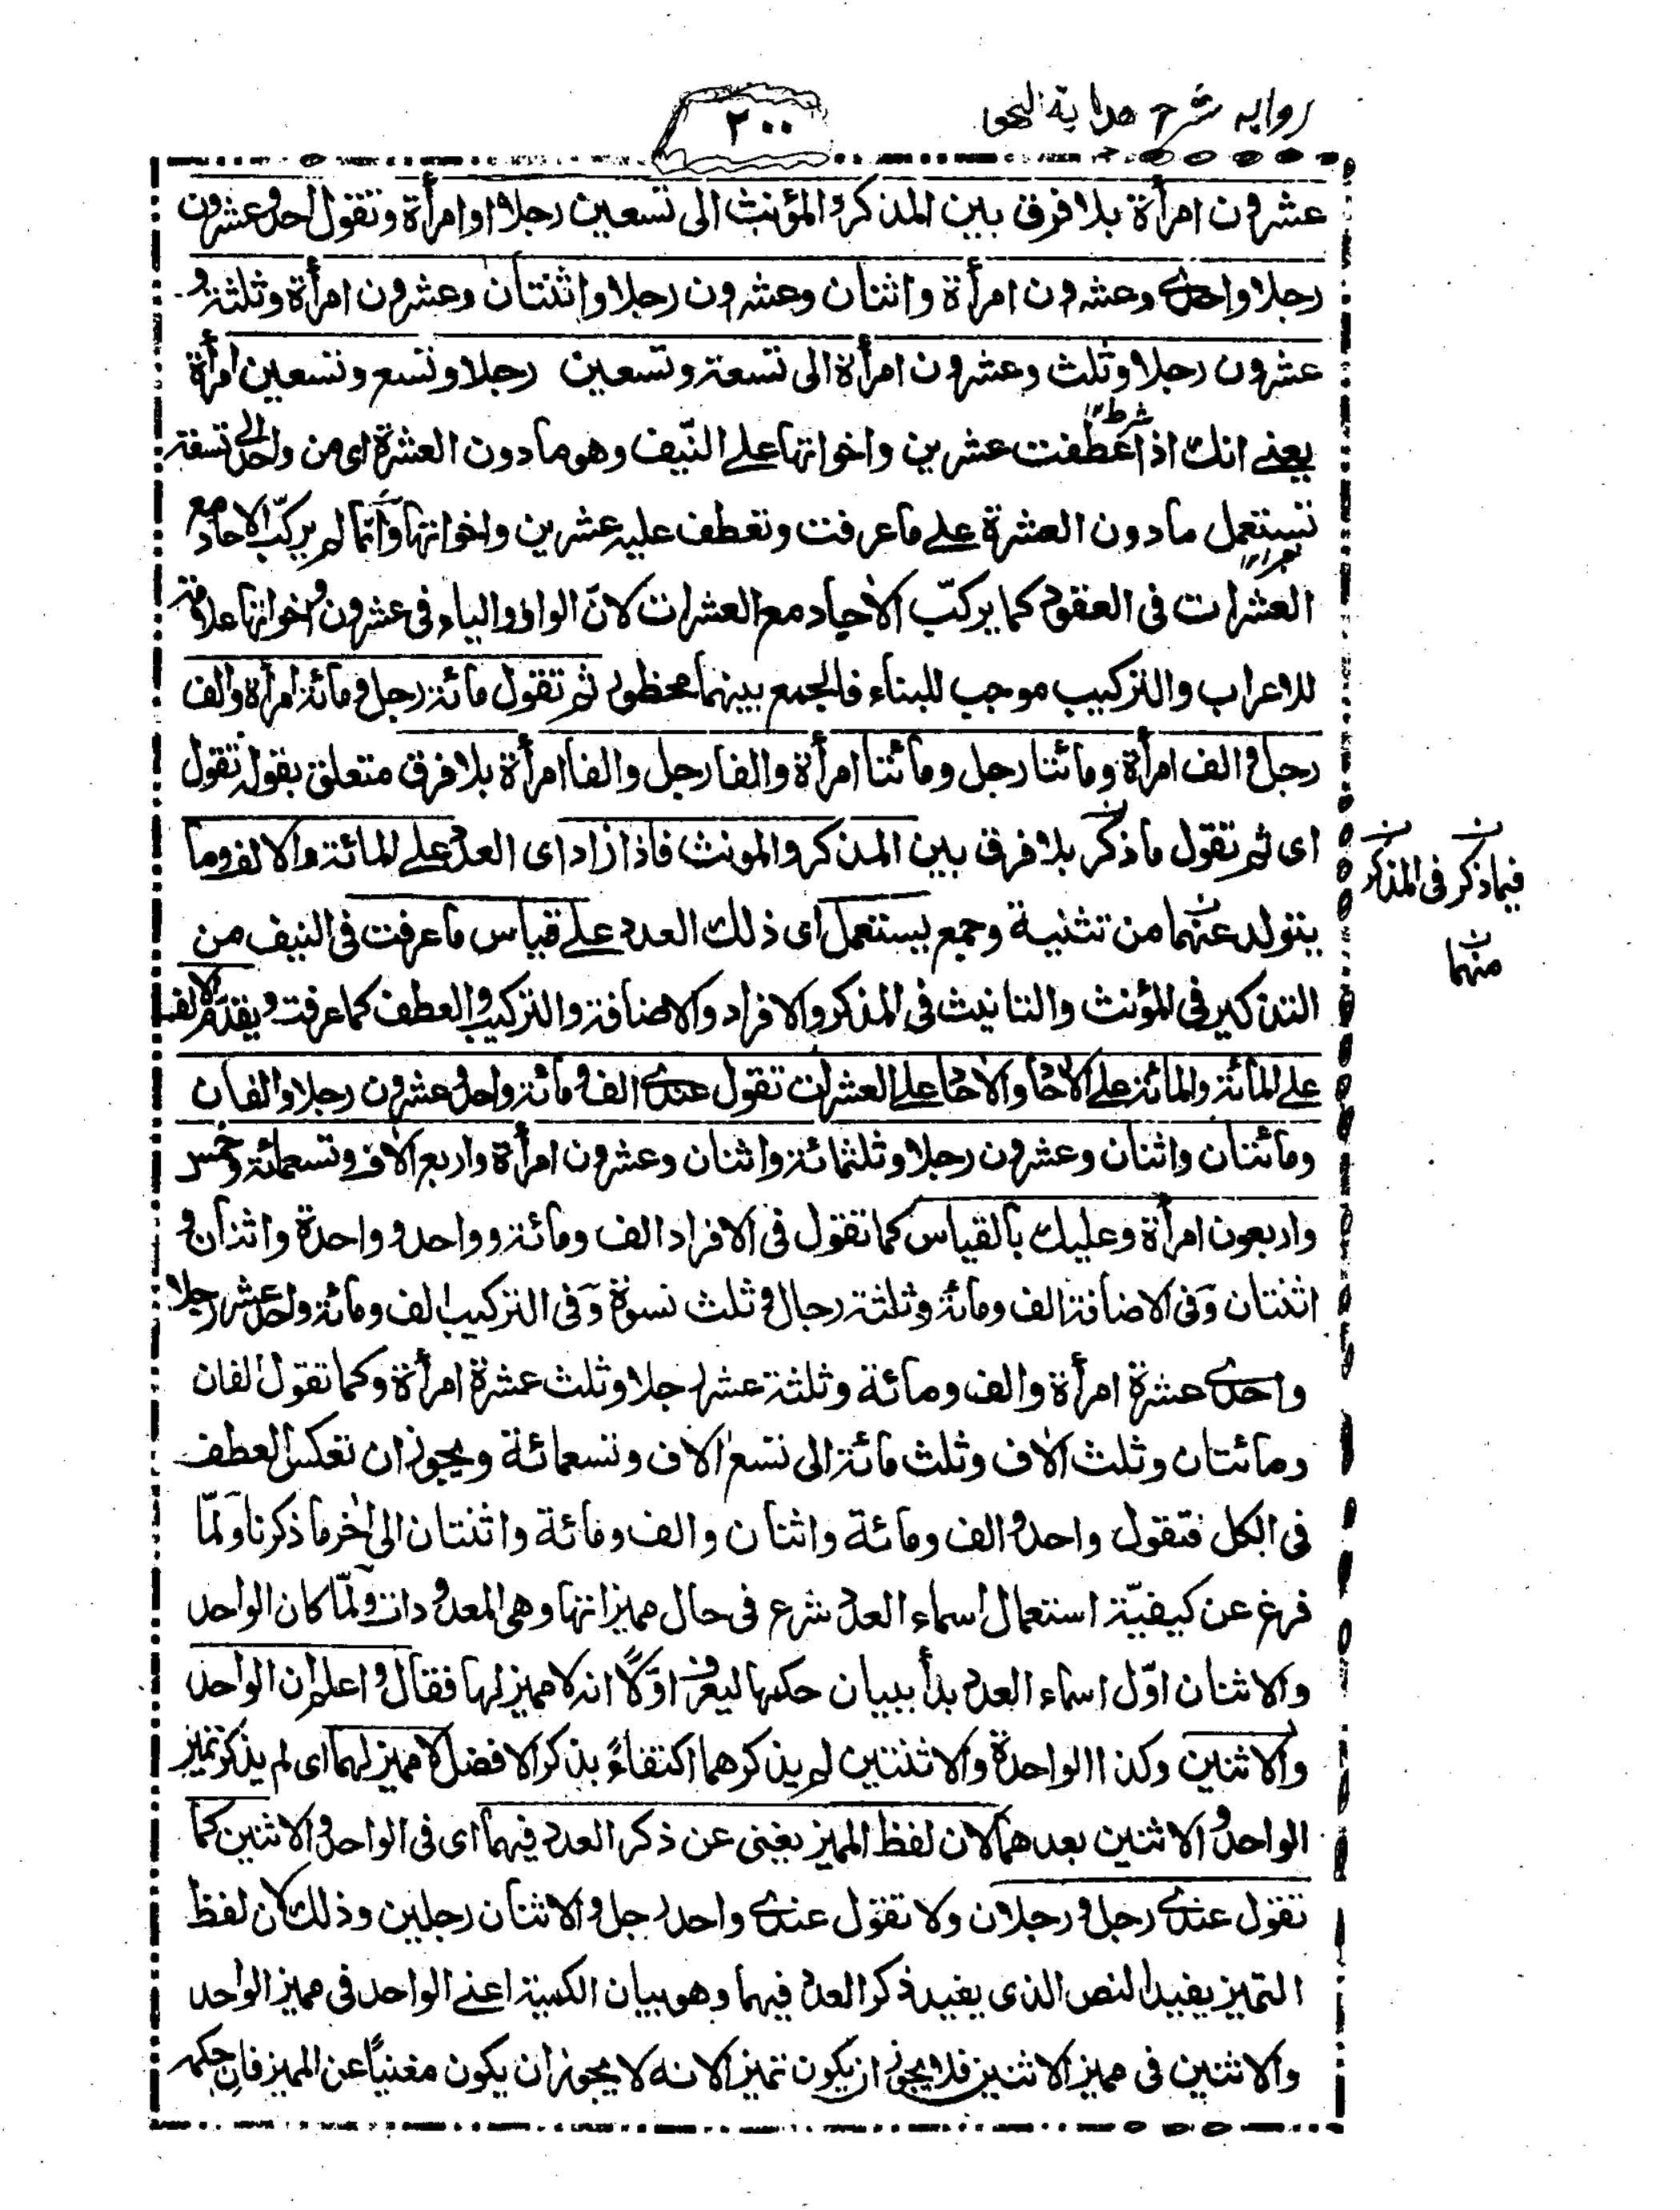 روایه شرح هدایة النحو
٢٠٠
عشرون امرأة بلا فرق بين المذكر والمؤنث الى تسعين رجلا او امرأة وتقول احد وعشرون
رجلا واحدى وعشرون امرأة واثنان وعشرون رجلا واثنتان وعشرون امرأة وثلثة و
عشرون رجلا وثلث وعشرون امرأة الى تسعة وتسعين رجلا وتسع وتسعين امرأة
يعنى انك اذا عطفت عشرين واخواتها على النيّف وهو ما دون العشرة اى من واحد الى تسعة
شرط١٢
تستعمل ما دون العشرة على ما عرفت وتعطف عليه عشرين واخواتها وانّما لم يركّب الاحاد مع
العشرات فى العقود كما يركّب الأحاد مع العشرات لانّ الواو والياء فى عشرون واخواتها علامة
للاعراب والتركيب موجب للبناء فالجمع بينهما محظور ثم تقول مائة رجل ومائة امرأة والف
رجل والف امرأة ومائتا رجل ومائتا امرأة والفا رجل والفا امرأة بلا فرق متعلق بقوله تقول
اى ثم تقول ما ذكر بلا فرق بين المذكر والمونث فاذا زاد اى العدد على المائة والالف وما
يتولد عنهما من تثنية وجمع يستعمل اى ذلك العدد على قياس ما عرفت فى النيف من
التذكير فى المؤنث والتانيث فى المذكر والافراد والاضافة والتركيب والعطف كما عرفت ويقدم الالف
على المائة والمائة على الأحاد والأحاد على العشرات تقول عندى الف ومائة واحد وعشرون رجلا والفان
ومائتان واثنان وعشرون رجلا وثلثمائة واثنان وعشرون امرأة واربع الاف وتسعمائة وخمس
واربعون امرأة وعليك بالقياس كما تقول فى الافراد الف ومائة وواحد وواحدة واثنان و
اثنتان وفى الاضافة الف ومائة وثلثة رجال وثلث نسوة وفى التركيب الف ومائة واحد عشر رجلا
واحدى عشرة امرأة والف ومائة وثلثة عشر رجلا وثلث عشرة امرأة وكما تقول الفان
ومائتان وثلث الاف وثلث مائة الى تسع الاف وتسعمائة ويجوز ان تعكس العطف
فى الكل فتقول واحد والف ومائة واثنان والف ومائة واثنتان الى اخر ما ذكرنا ولمّا
فرغ عن كيفيّة استعمال اسماء العدد شرع فى حال مميزاتها وهى المعدودات ولمّا كان الواحد
والاثنان اوّل اسماء العدد بدأ ببيان حكمها ليعرف اوّلًا انه لا مميز لها فقال واعلم ان الواحد
والاثنين وكذا الواحدة والاثنتين لم يذكرهما اكتفاءً بذكر الافضل لا مميز لهما اى لم يذكر تميز
الواحد والاثنين بعدهما لان لفظ المميز يغنى عن ذكر العدد فيهما اى فى الواحد والاثنين كما
تقول عندى رجل ورجلان ولا تقول عندى واحد رجل والاثنان رجلين وذلك لان لفظ
التميز يفيد النص الذى يفيد ذكر العدد فيهما وهو بيان الكمية اعنى الواحد فى مميز الواحد
والاثنين فى مميز الاثنين فلا يجوز ان يكون تميز الانه لا يجوز ان يكون مغنيًا عن المميز فان حكم
فيما ذكر فى المذكر
منهما